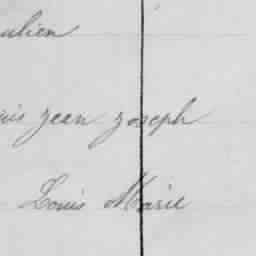 ulien
uis jean joseph
Louis Marie